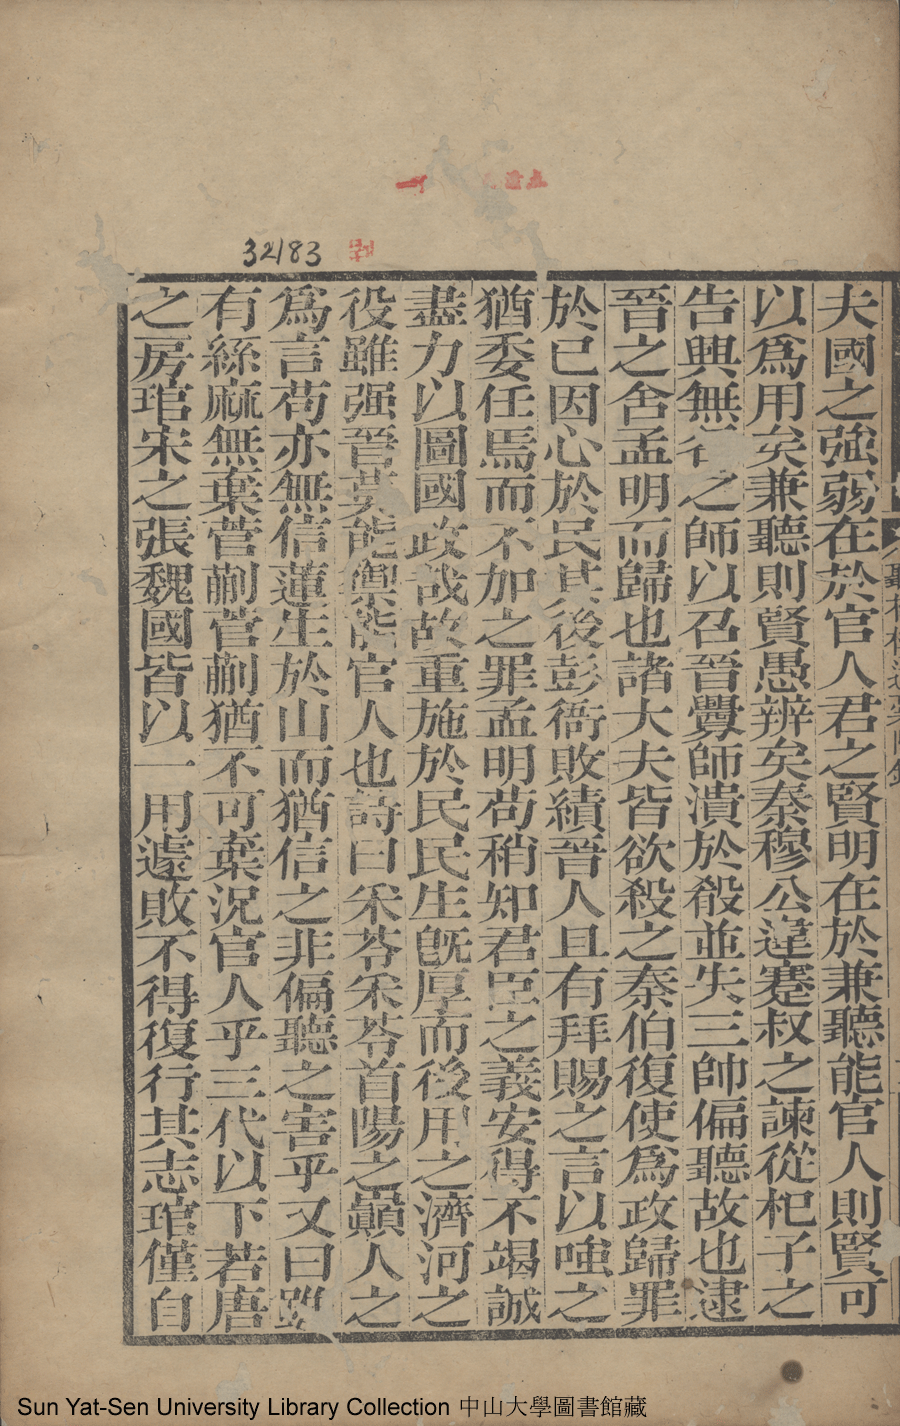 32183
夫國之強弱在於官人君之賢明在於兼聽能官人則賢可
以爲用矣兼聽則賢愚辨矣秦穆公違蹇叔之諫從杞子之
告興無之師以召晉釁師潰於殽並失三帥偏聽故也逮
晉之舍孟明而歸也諸大夫皆欲殺之秦伯復使爲政歸罪
於已因心於民其後彭衙敗績晉人且有拜賜之言以嗤之
猶委任焉而不加之罪孟明苟稍知君臣之義安得不竭誠
盡力以圖國政哉故重施於民民生旣厚而後用之濟河之
役雖强晉莫能禦能官人也詩曰采苓采苓首陽之巔人之
爲言苟亦無信蓮生於山而猶信之非偏聽之害乎又曰雖
有絲麻無棄菅蒯菅蒯猶不可棄況官人乎三代以下若唐
之房琯宋之張魏國皆以一用遽敗不得復行其志琯僅自
Sun Yat-Sen University Library Collection 中山大學圖書館藏